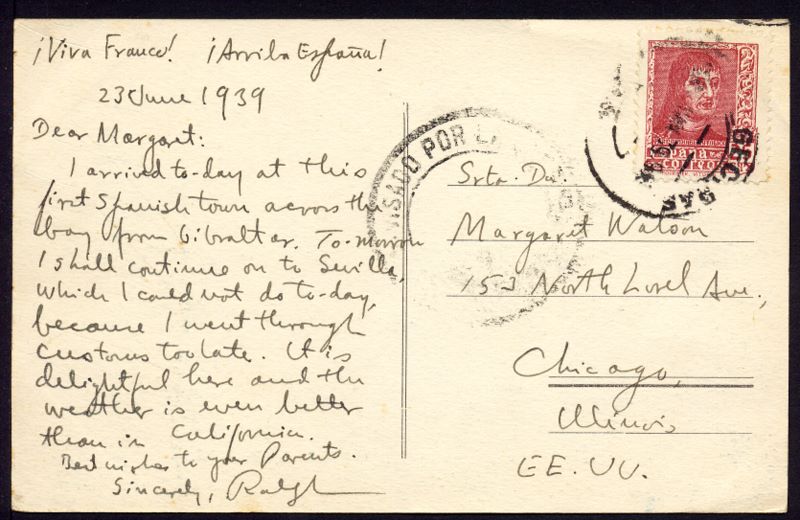 ¡Viva Franco! ¡Arriba España!
23 June 1939
Dear Margaret:
I arrived to-day at this
first Spanish town across the
bay from Gibraltar. To-morrow
I shall continue on to Sevilla,
which I could not do to-day,
because I went through
Customs too late. It is
delightful here and the
weather is even better
than in California.
Best wishes to your Parents.
Sincerely, Ralph
SADO POR LA
Srta. Da.
Margaret Watson
153 North Ave.,
Chicago,
Illinois
EE. UU.
CORREOS